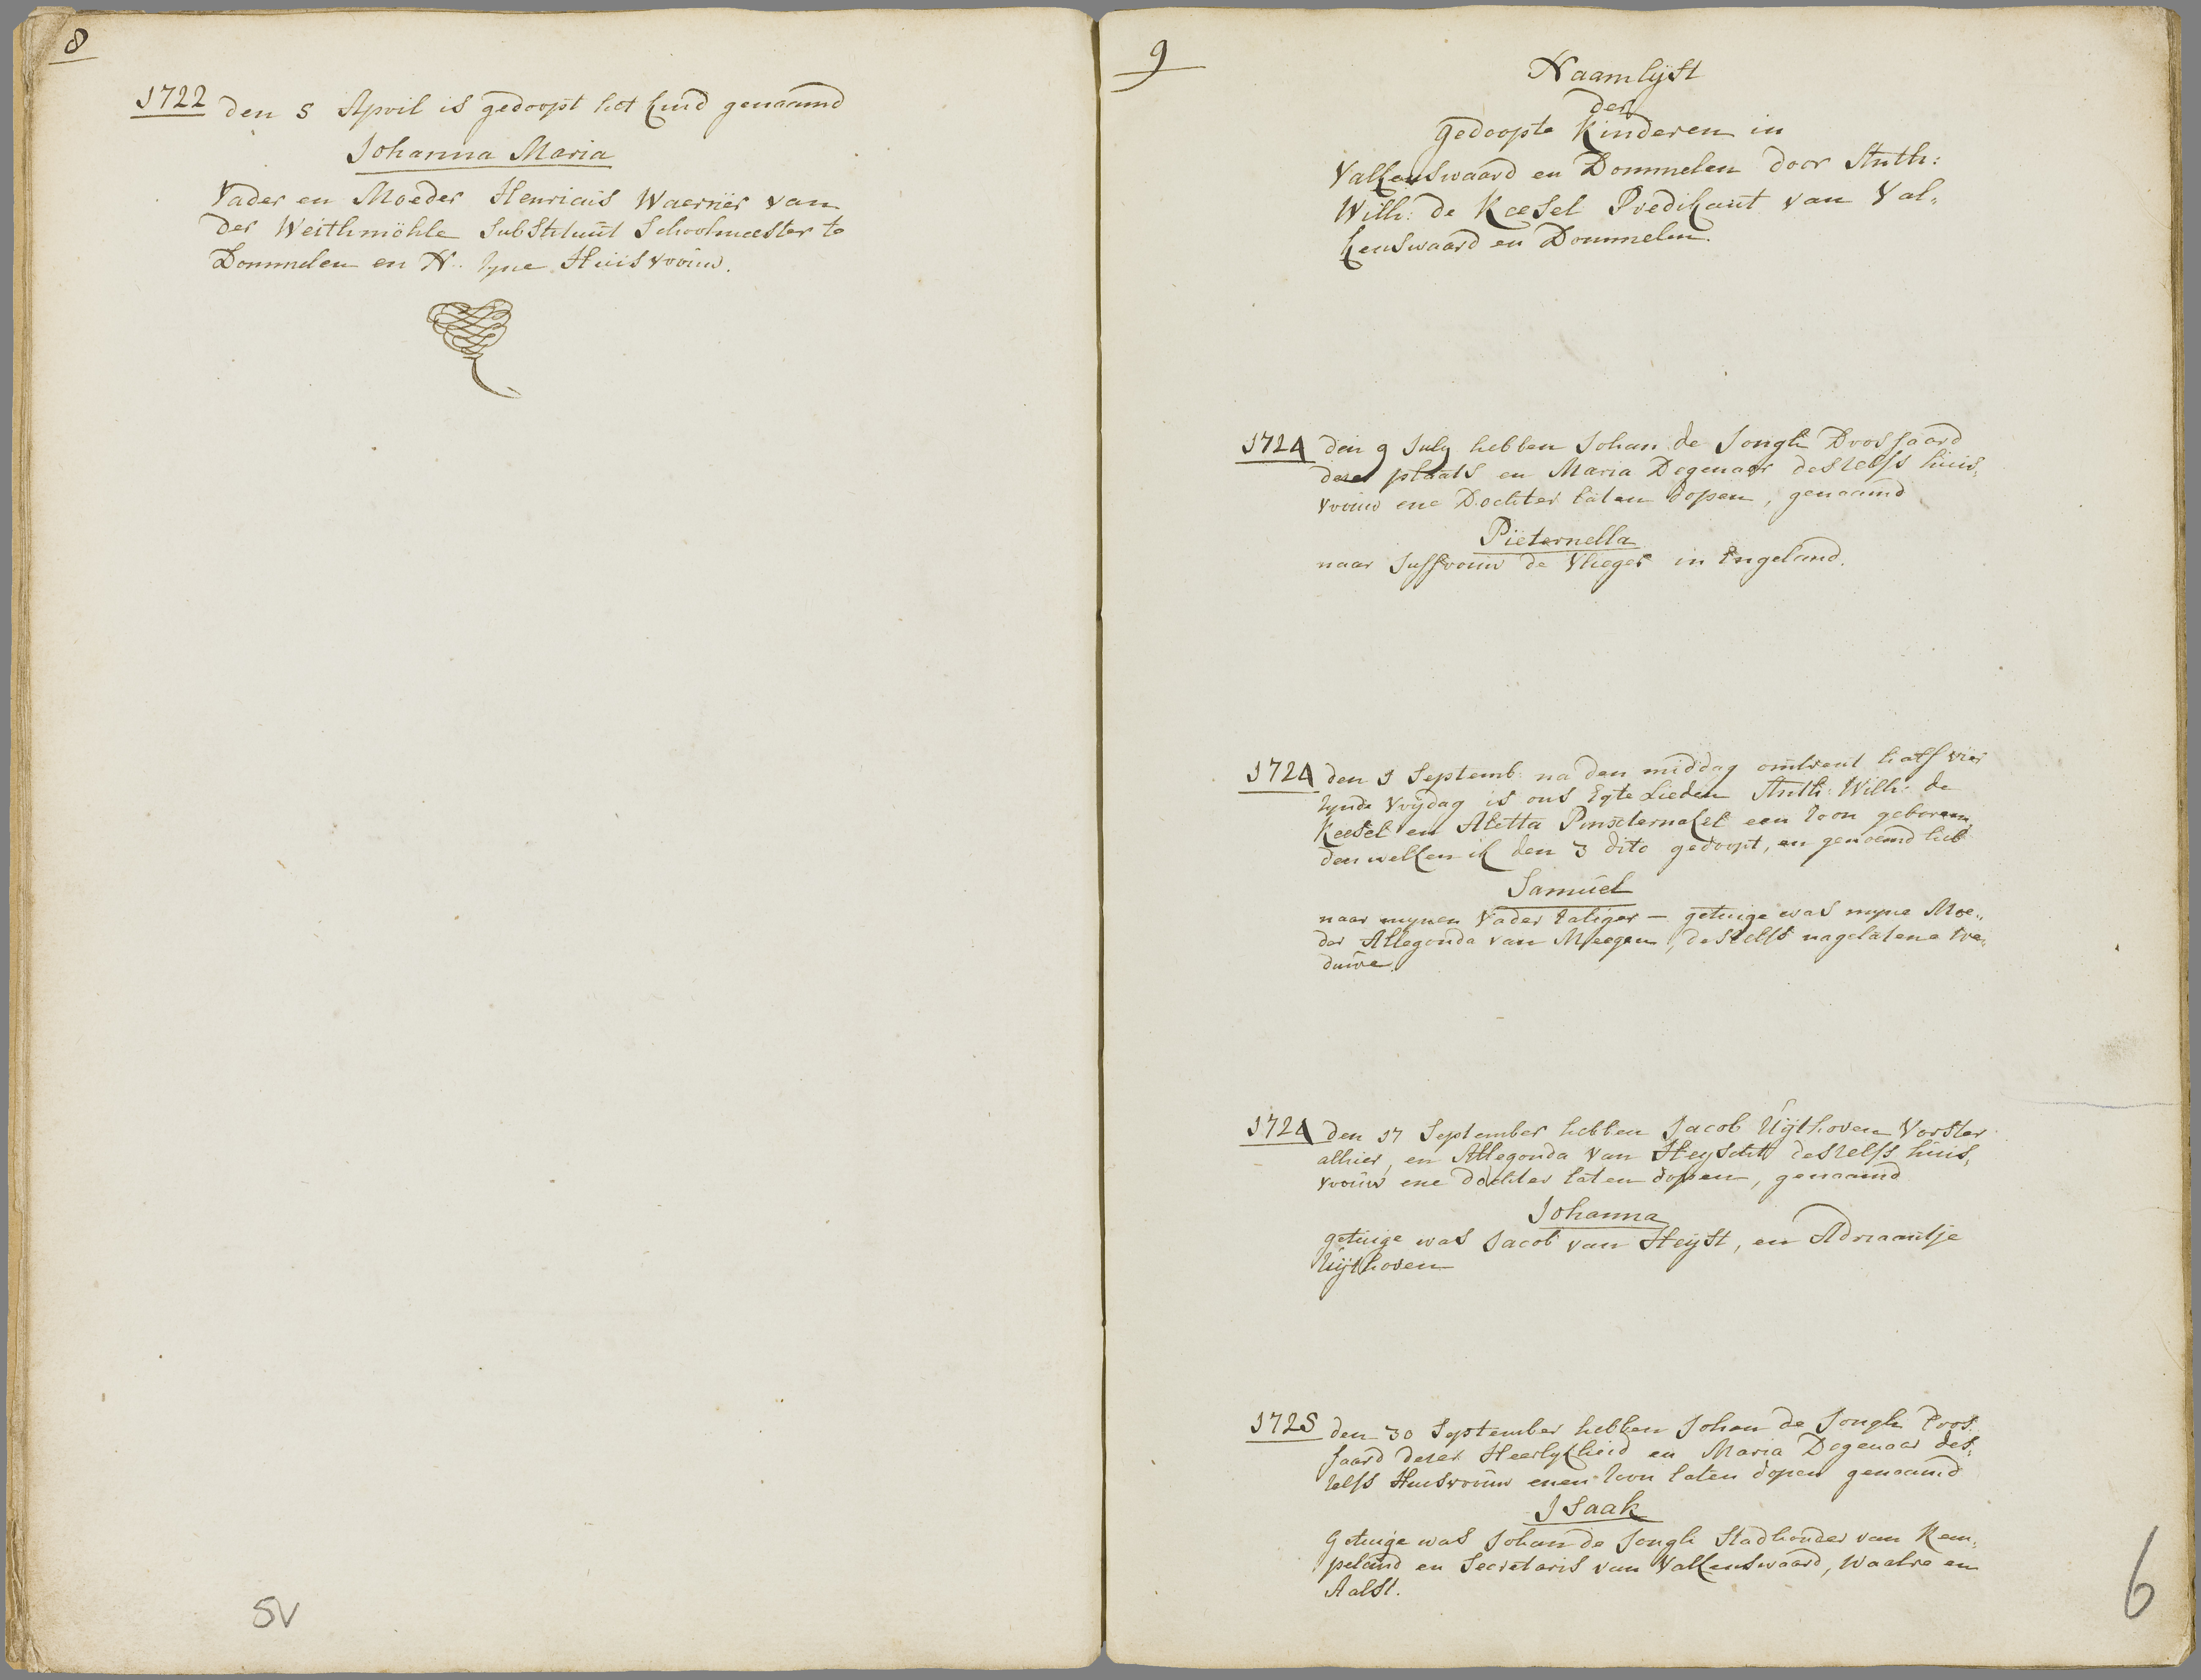 8
1722 den 5 April is gedoopt het kind genaamd
Johanna Maria
Vader en Moeder Henricus Waerner van
der Weithmöhle Substituut Schoolmeester te
Dommelen en N.. zyne Huisvrouw.
5V
9
Naamlyst
der
gedoopte Kinderen in
Valkenswaard en Dommelen door Anth:
Wilh: de Keesel Predikant van Val„
kenswaard en Dommelen.
1724 den 9 July hebben Johan de Jongh Drossaard
dezer plaats en Maria Degenaar deszelfs huis„
vrouw ene Dochter laten dopen, genaamd
Pieternella
naar Juffrouw de Vlieger in Engeland.
1724 den 1 Septemb: na den middag omtrent half vier
zynde Vrydag is ons Egte Lieden Anth: Wilh: de
Keesel en Aletta Pinsternakel een zoon geboren
den welken ik den 3 dito gedoopt, en genoemd heb
Samuel
naar mynen Vader zaliger — getuige was myne Moe„
der Allegonda van Meegen, deszelfs nagelatene we„
duwe.
1724 den 17 September hebben Jacob Uÿthoven Vorster
alhier, en Allegonda van Heyscht deszelfs huis„
vrouw ene dochter laten dopen, genaamd
Johanna
getuige was Jacob van Heyst, en Adriaantje
Uÿthoven
1725 den 30 September hebben Johan de Jongh Dros„
saard dezer Heerlykheid en Maria Degenaar des„
zelfs Huisvrouw enen zoon laten dopen genaamd
Isaak
Getuige was Johan de Jongh Stadhouder van Kem„
peland en Secretaris van Valkenswaard, Waalre en
Aalst.
6